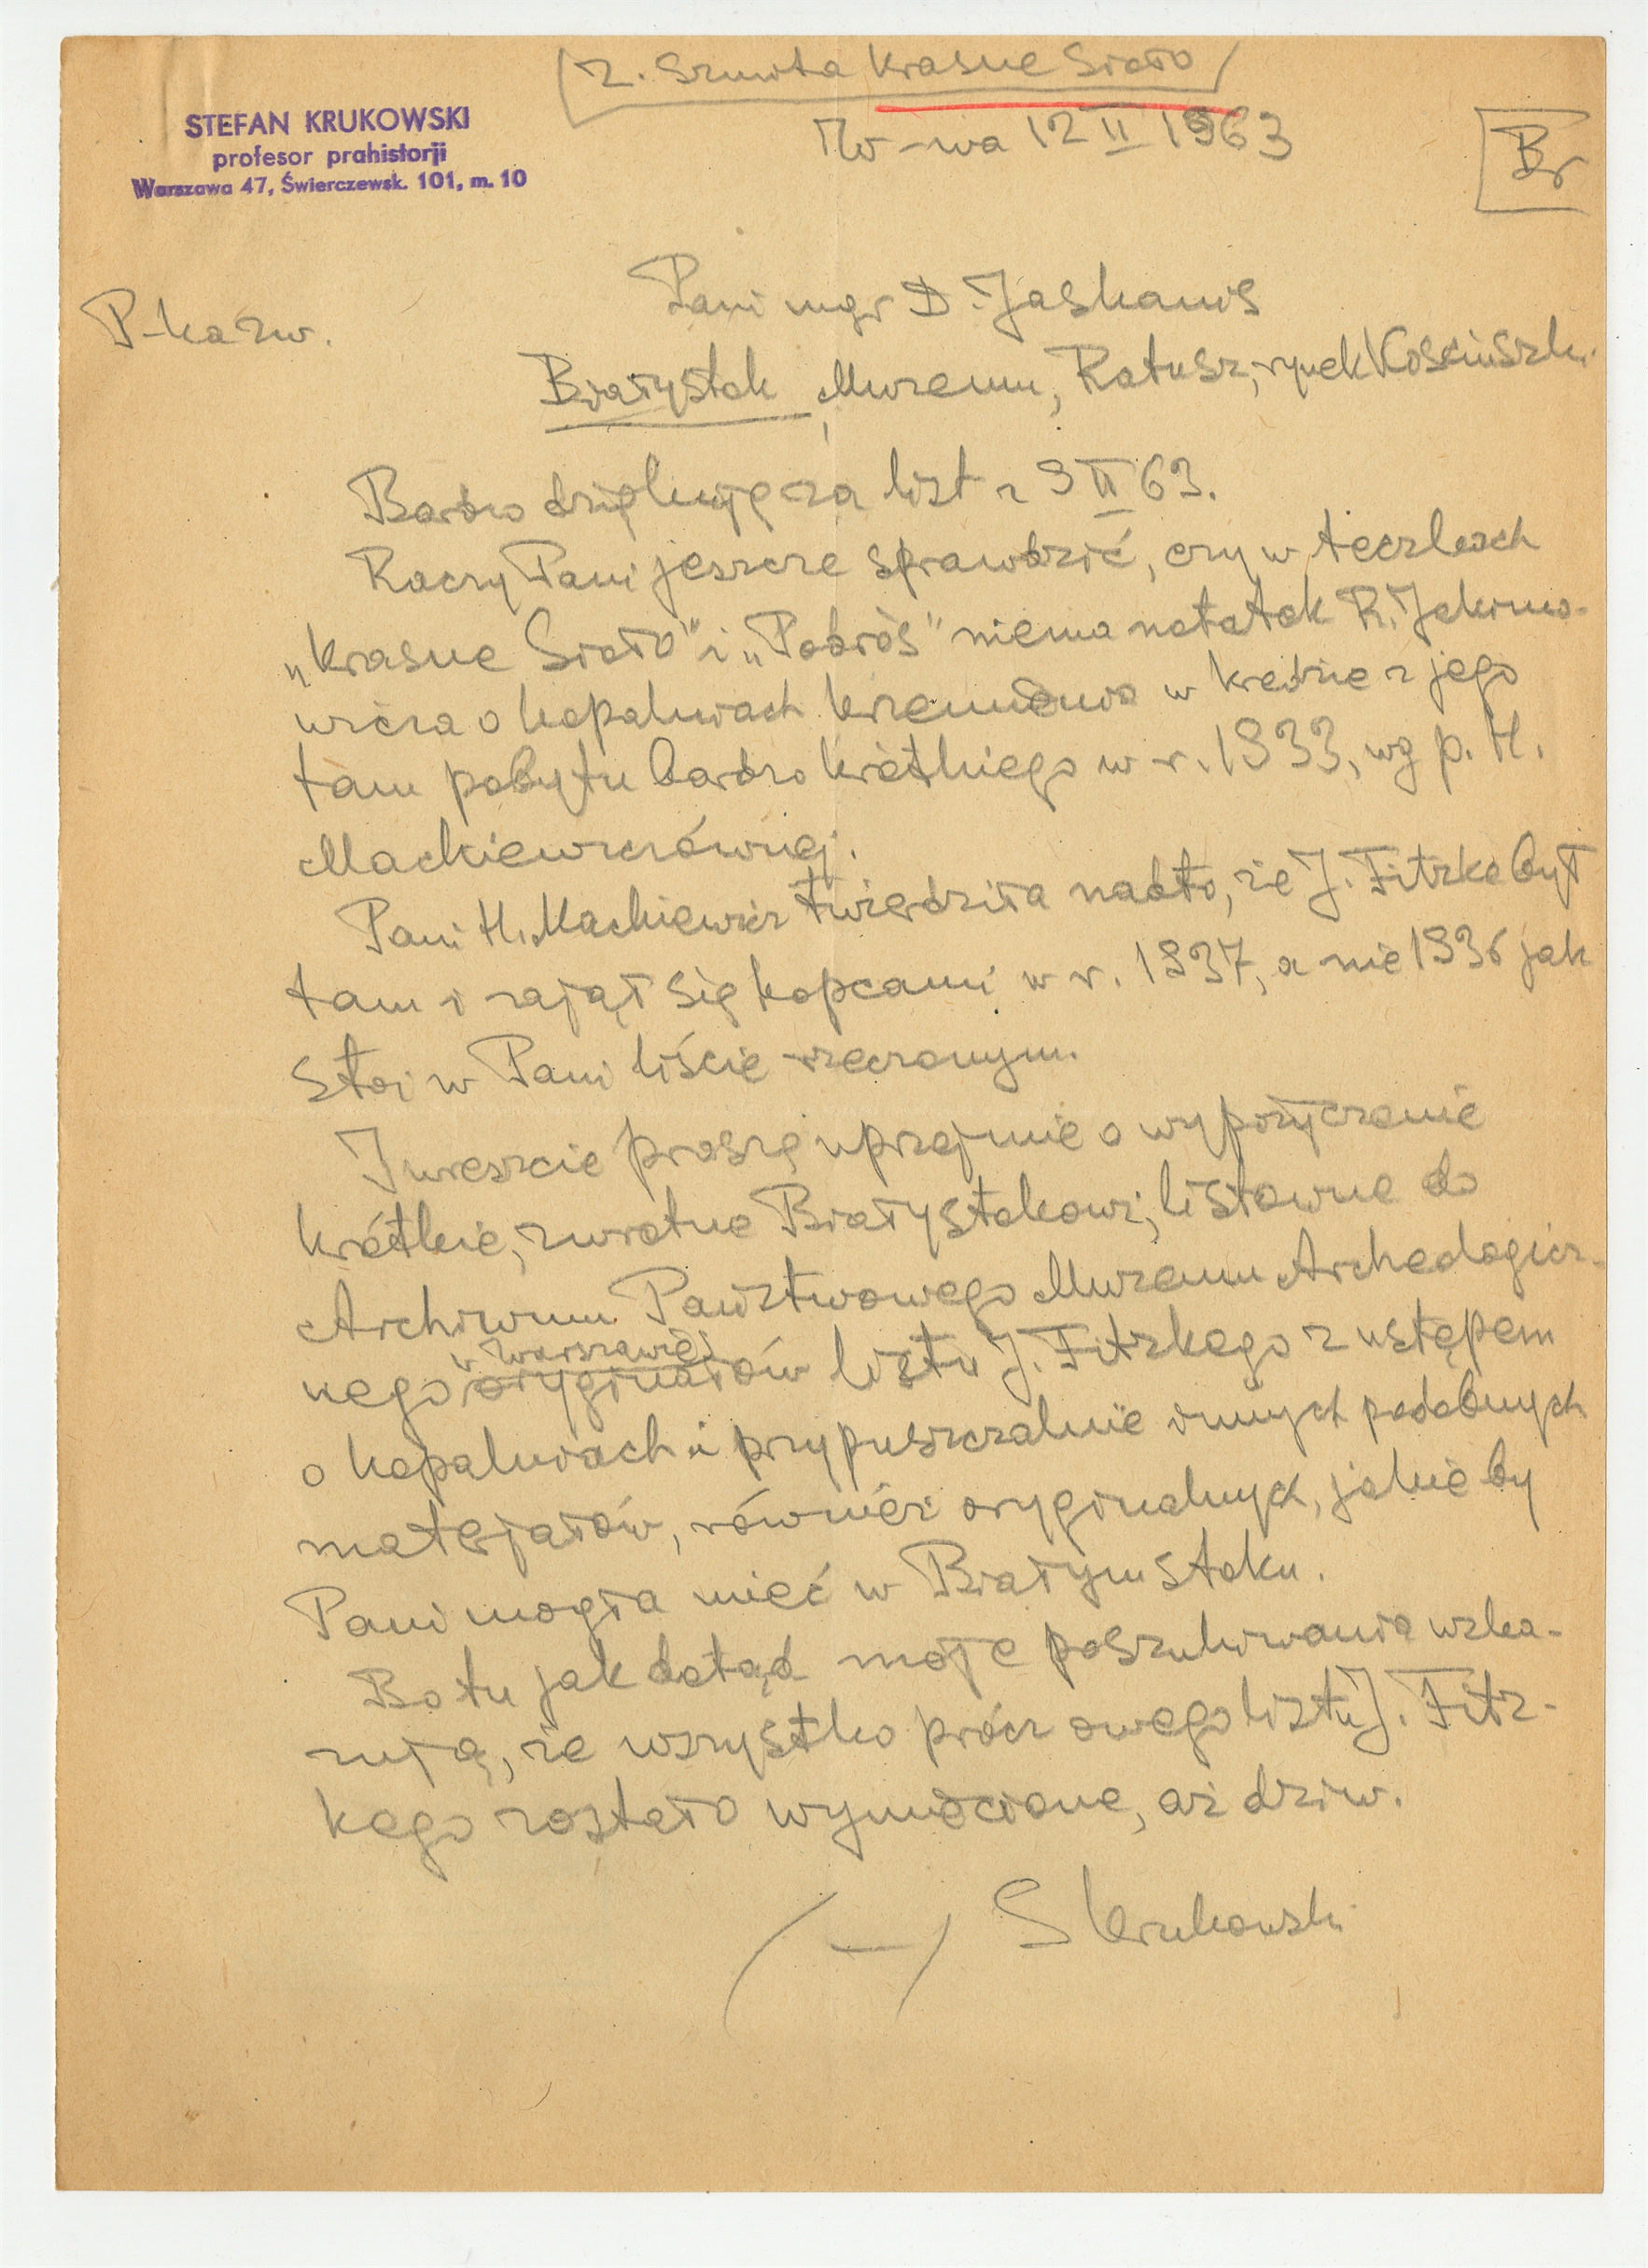 Z. Szmita Krasne Sioło
STEFAN KRUKOWSKI
profesor prahistorji
Warszawa 47, Świerczewsk. 101, m. 10
W-wa 12 II 1963
Br
Pani mgr D. Jaskanis
P-ka zw.
Białystok, Muzeum, Ratusz, rynek Kościuszki
Bardzo dziękuję za list z 9 II 63.
Raczy Pani jeszcze sprawdzić, czy w teczkach
„Krasne Sioło" i „Podróś" niema notatek R. Jakimo-
wicza o kopalniach krzemienia w kredzie z jego
tam pobytu bardzo krótkiego w r. 1933, wg p. H.
Mackiewiczównej.
Pani H. Mackiewicz twierdziła nadto, że J. Fitzke był
tam i zajął się kopcami w r. 1937, a nie 1936 jak
stoi w Pani liście rzeczonym.
I wreszcie proszę uprzejmie o wypożyczenie
krótkie, zwrotne Białystokowi, listowne do
Archiwum Państwowego Muzeum Archeologicz-
w Warszawie
nego oryginałów listu J. Fitzkego z ustępem
o kopalniach i przypuszczalnie innych podobnych
materjałów, również oryginalnych, jakie by
Pani mogła mieć w Białymstoku.
Bo tu jak dotąd moje poszukiwania wska-
zują, że wszystko prócz owego listu J. Fitz-
kego zostało wymiecione, aż dziw.
(—) S Krukowski